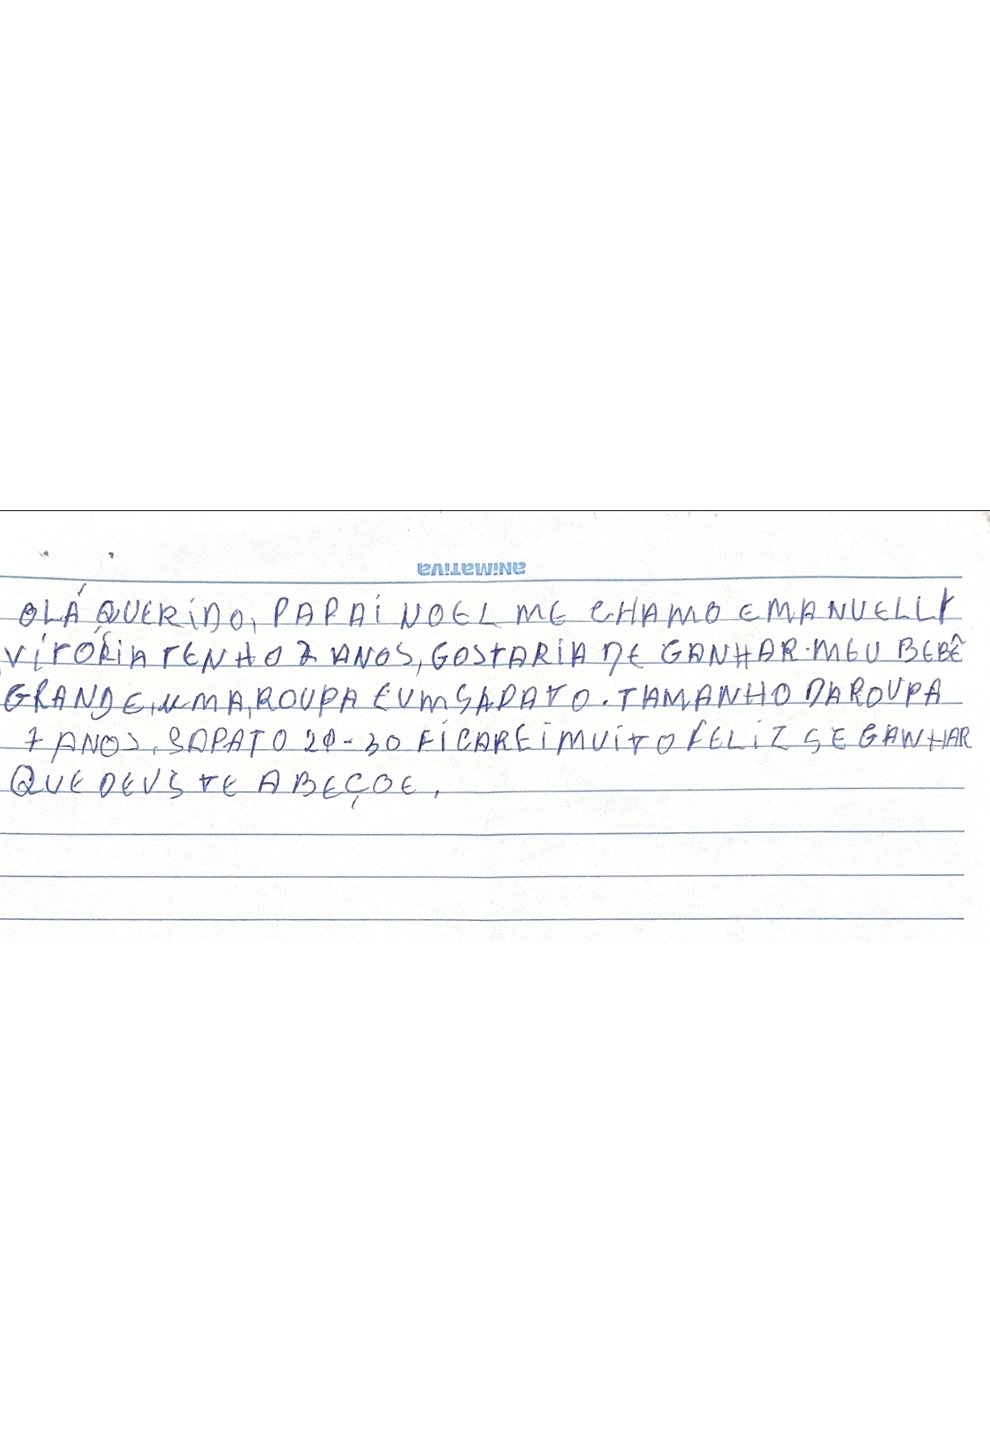 animativa
OLÁ QUERIDO, PAPAI NOEL ME CHAMO EMANUELLY
VITÓRIA TENHO 7 ANOS, GOSTARIA DE GANHAR. MEU BEBÊ
GRANDE, UMA, ROUPA E UM SAPATO. TAMANHO DA ROUPA
7 ANOS, SAPATO 29-30 FICAREI MUITO FELIZ SE GANHAR
QUE DEUS TE ABEÇOE,